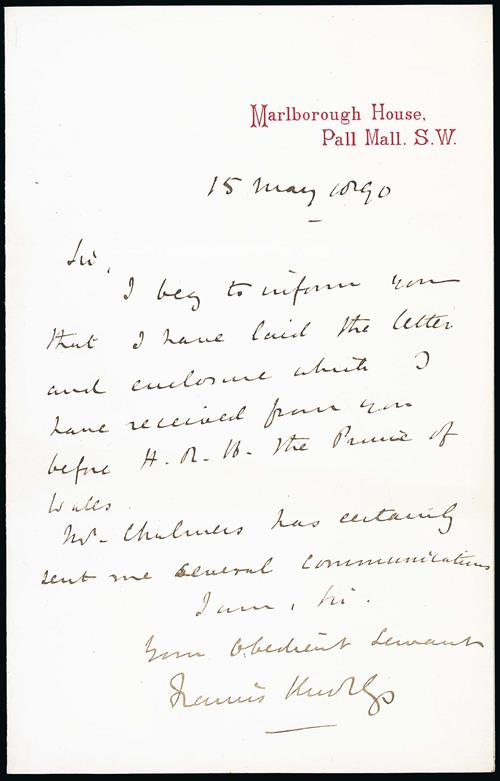 Marlborough House,
Pall Mall. S.W.
15 May 1890
Sir,
I beg to inform you
that I have laid the letter
and enclosure which I
have received from you
before H. R. H. the Prince of
Wales.
Mr. Chalmers has certainly
sent me several communications
I am, Sir.
Your Obedient Servant
Francis Knollys